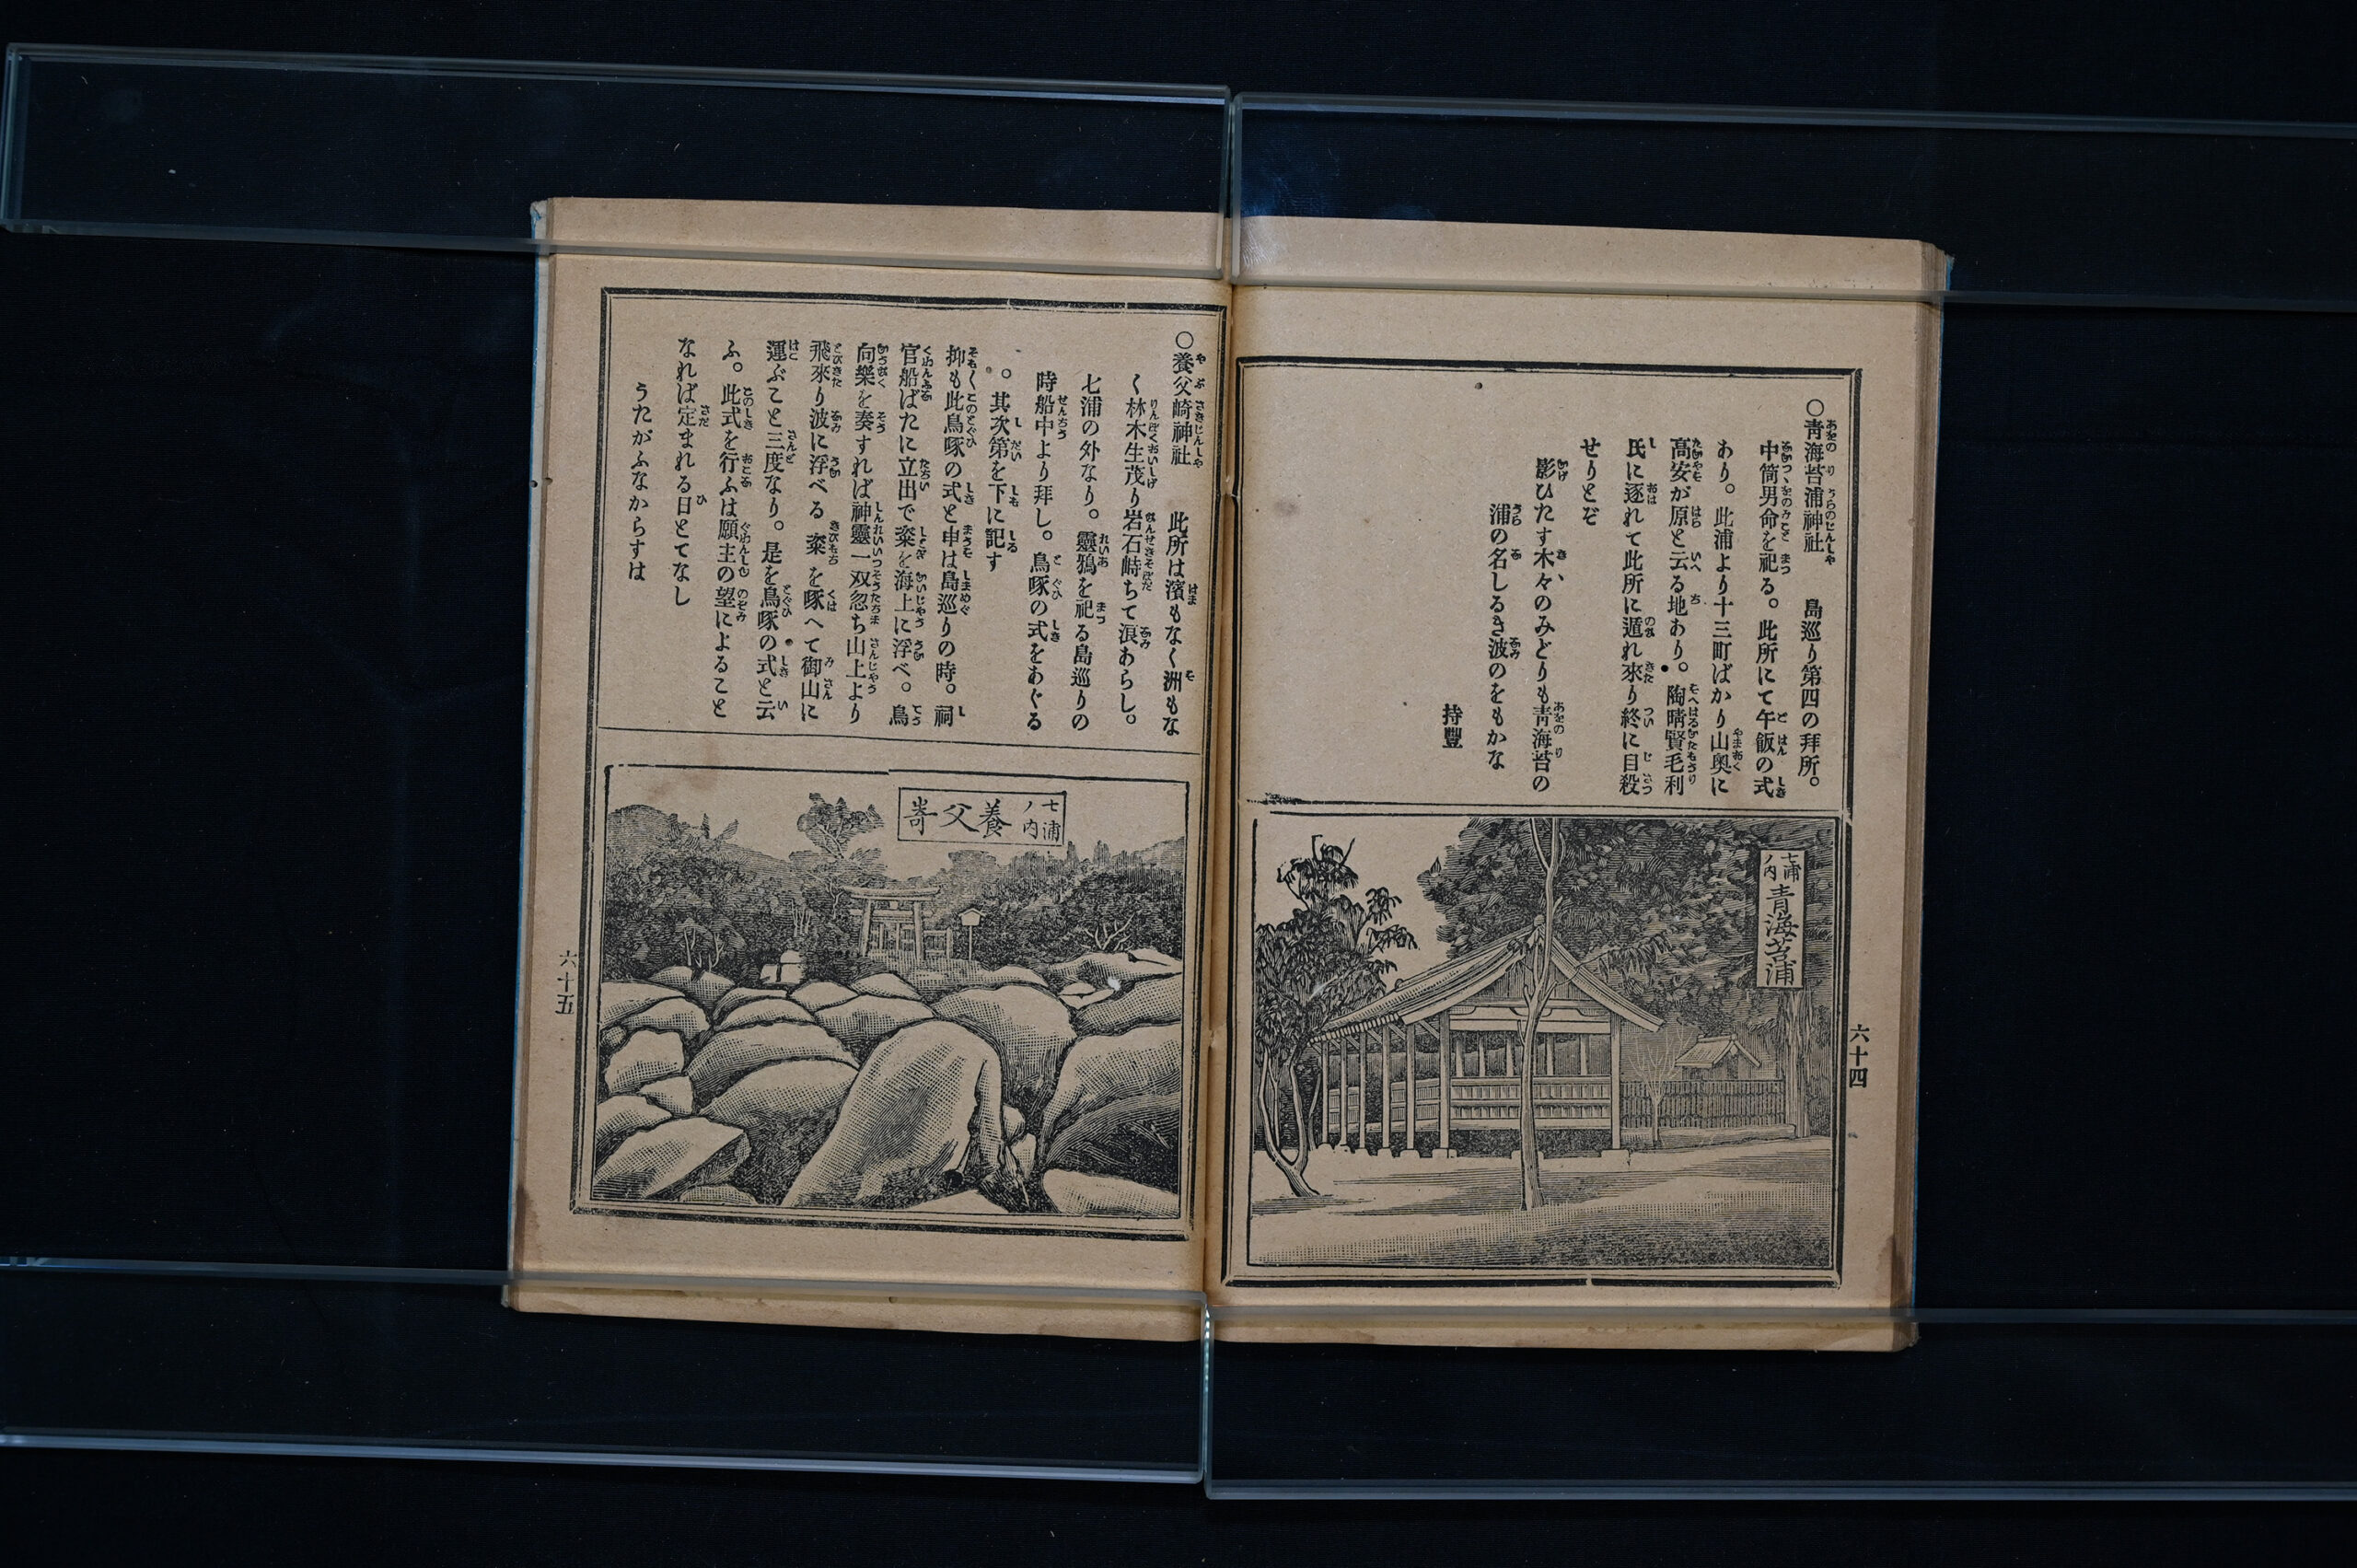 〇青海苔浦神社　島巡り第四の拜所。
中筒男命を祀る。此所にて午飯の式
あり。此浦より十三町ばかり山奥に
高安が原と云る地あり。陶晴賢毛利
氏に逐れて此所に遁れ來り終に自殺
せりとぞ
影ひたす木々のみどりも青海苔の
浦の名しるき波のをもかな
持豐
七浦ノ内 青海苔浦
六十四
〇養父崎神社　此所は濱もなく洲もな
く林木生茂り岩石峙ちて浪あらし。
七浦の外なり。靈鴉を祀る島巡りの
時船中より拜し。鳥啄の式をあぐる
。其次第を下に記す
抑も此鳥啄の式と申は島巡りの時。祠
官船ばたに立出で粢を海上に浮べ。鳥
向樂を奏すれば神靈一双忽ち山上より
飛來り波に浮べる粢を啄へて御山に
運ぶこと三度なり。是を鳥啄の式と云
ふ。此式を行ふは願主の望によること
なれば定まれる日とてなし
うたがふなからすは
七浦ノ内 養父嵜
六十五